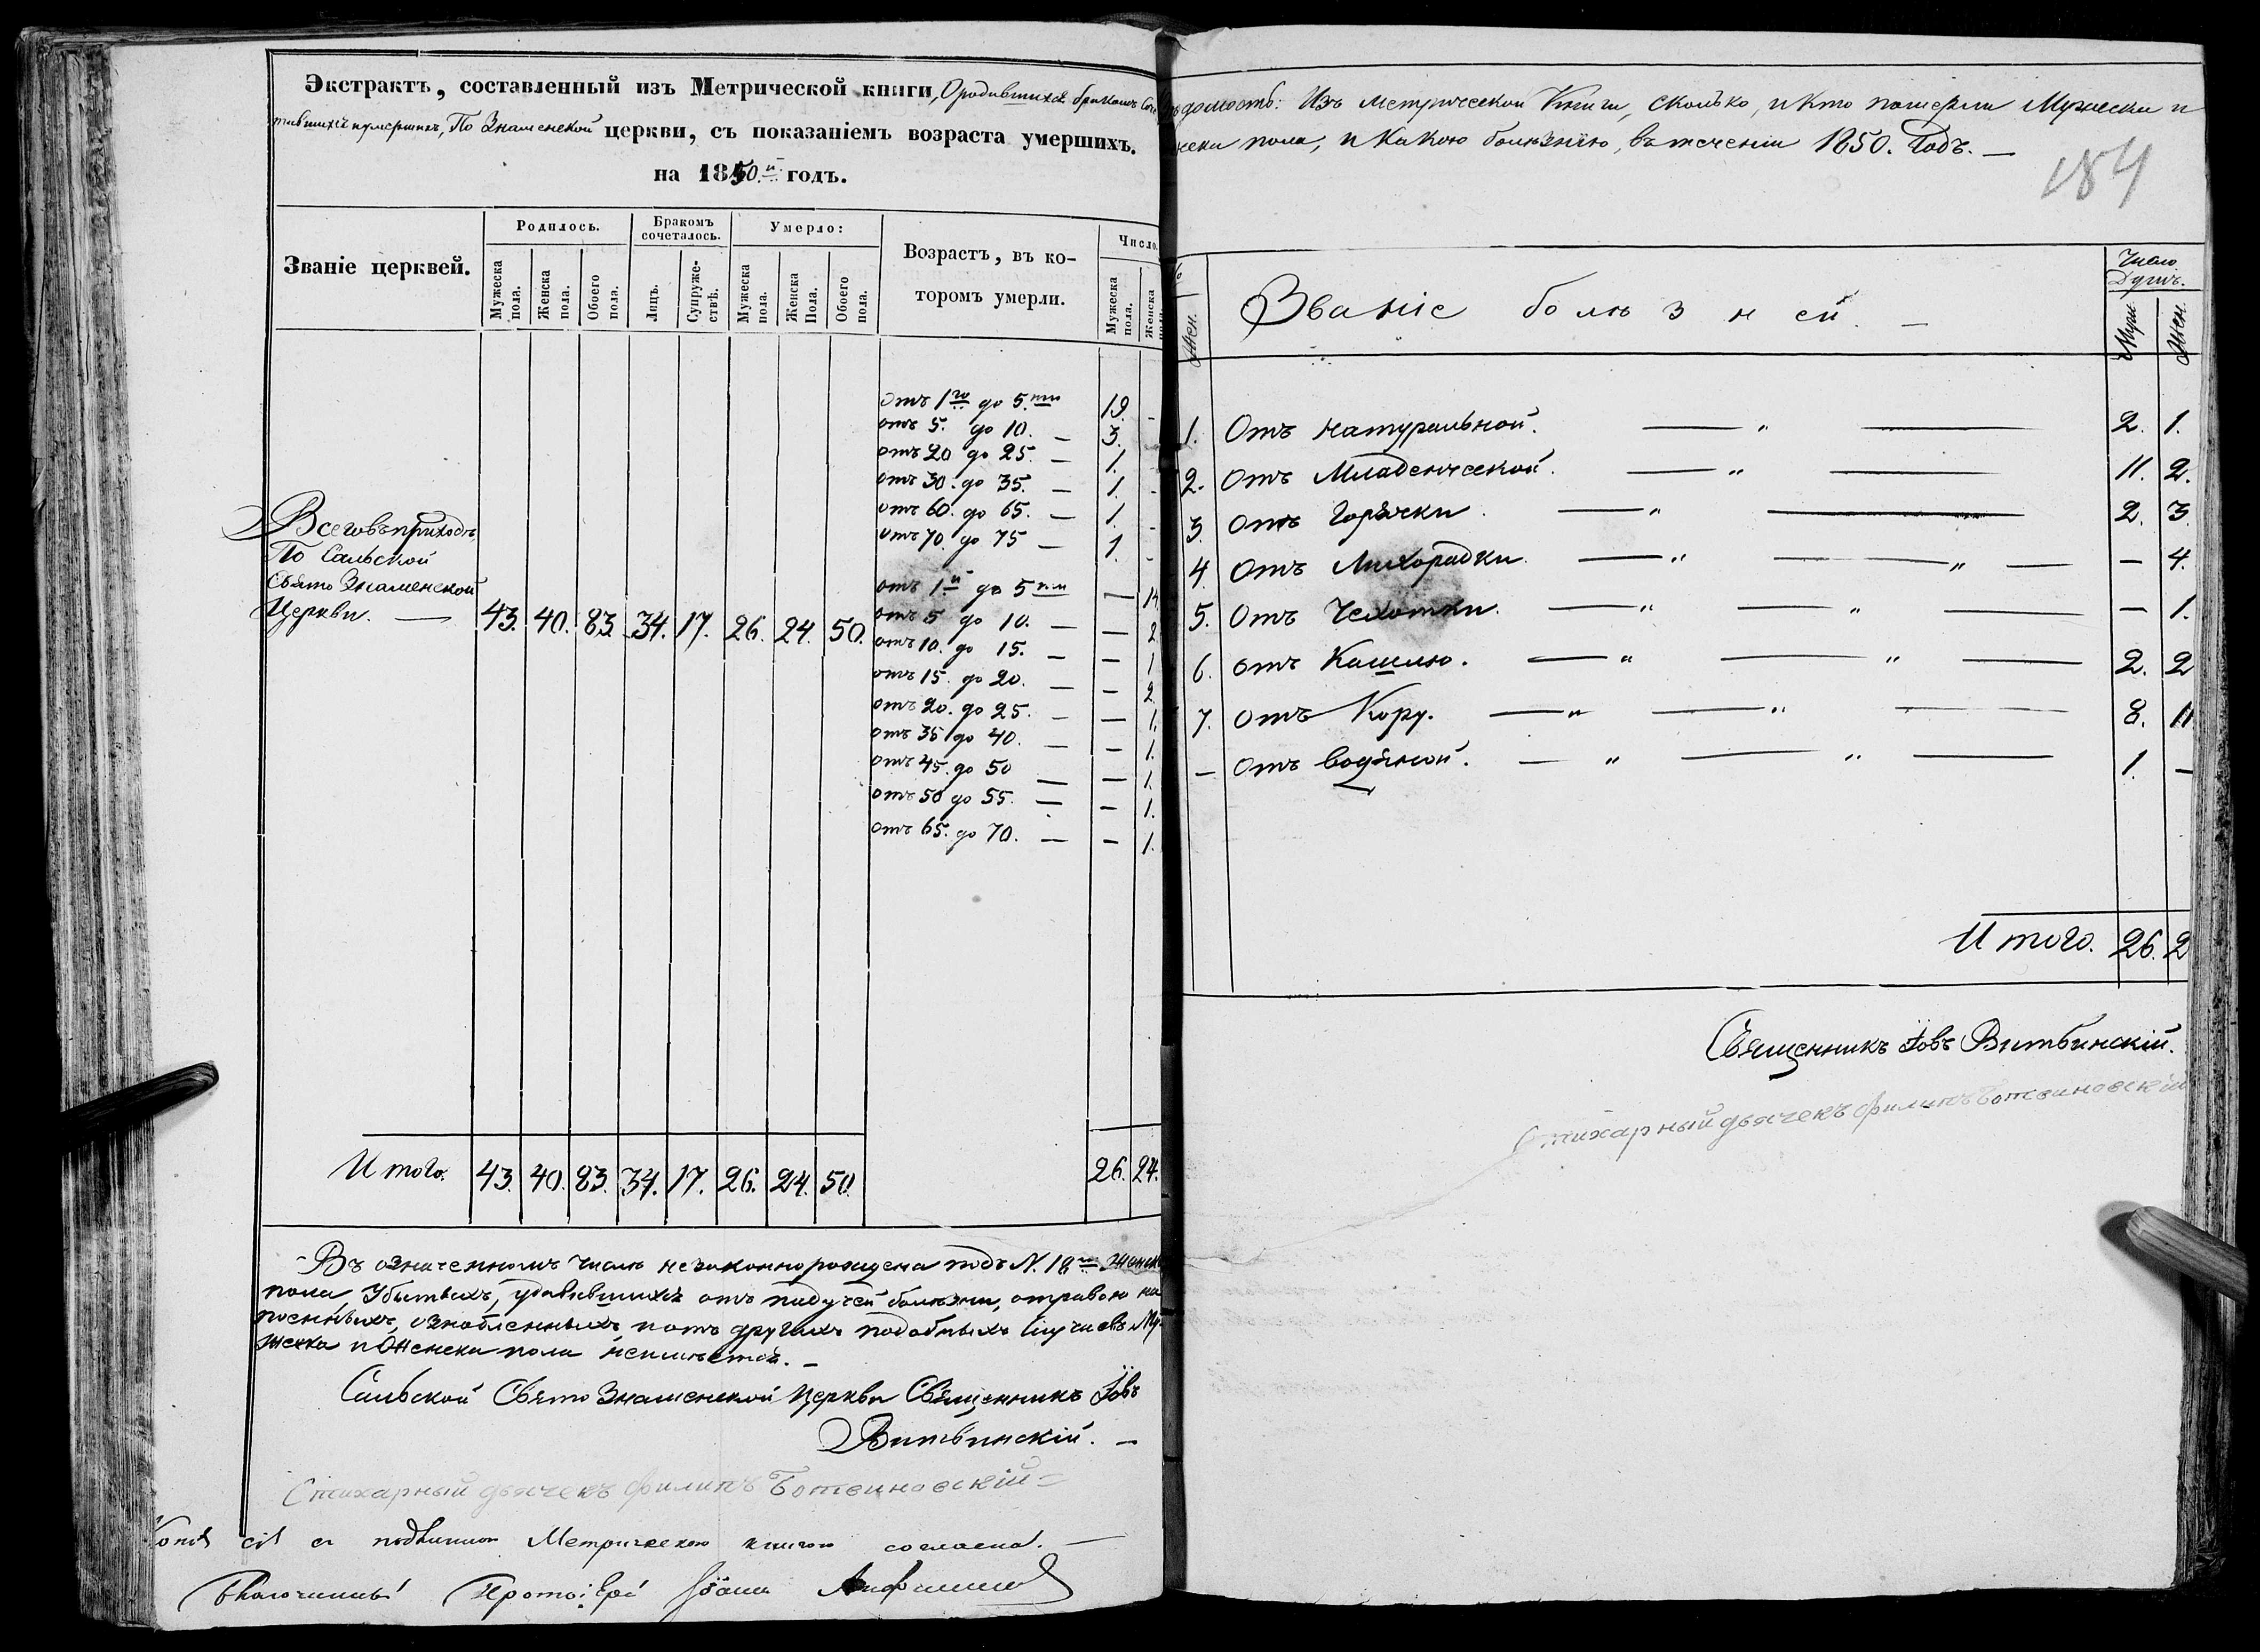 Экстрактъ, составленный изъ Метрической книги, О родившихся бракомъ соче
тавшихся и умершихъ, По Знаменской церкви, съ показаніемъ возраста умершихъ.
на 1850.й годъ.
Званіе церквей.
Родилось.
Мужеска пола.
Женска пола.
Обоего пола.
Бракомъ сочеталось.
Лицъ.
Супруже-ствѣ.
Умерло:
Мужеска пола.
Женска Пола.
Обоего пола.
Возрастъ, въ ко-
торомъ умерли.
Число.
Мужеска пола.
Женска
отъ 1го до 5.ти 19. -
отъ 5. до 10. — 3.
отъ 20 до 25. — 1. -
отъ 30. до 35. — 1. -
отъ 60. до 65. — 1. -
отъ 70. до 75 — 1. -
Всего въ приходѣ
По Сальской
Свято Знаменской
Церкви. — 43. 40. 83. 34. 17. 26. 24. 50.
отъ 1й до 5ти — 14
отъ 5 до 10. — — 2
отъ 10. до 15. — — 1
отъ 15. до 20. — — 2
отъ 20. до 25. — — 1.
отъ 35 до 40. — — 1.
отъ 45. до 50 — — 1.
отъ 50 до 55. — — 1.
отъ 65. до 70. — — 1.
Итого. 43. 40. 83. 34. 17. 26. 24. 50. 26. 24.
Въ означенномъ числѣ незаконнорождена подъ N. 18мъ Женск
пола, Убитыхъ, удавившихся отъ падучей болѣзни, отравою на
ознобленныхъ, и отъ другихъ подобныхъ случаевъ Му-
жеска и Женска пола неимѣется. —
Сальской Свято Знаменской Церкви Священникъ Іовъ
Витбинскій. —
Стихарный дьячекъ Филипъ Ботвиновскій
съ подлинною Метрическою книгою согласна. —
Благочинный Протоіерей Іоаннъ
вѣдомость: Изъ метрической Книги, сколько, и кто померли Мужески и
нски пола, и какою болѣзнію, въ теченіи 1850. Годъ. —
184
Жен.
Званіе болѣзней. —
Число Душъ.
Муж.
Жен.
1. Отъ натуральной. — „ — 2. 1.
2. отъ Младенческой. — „ — 11. 2.
3. отъ Горячки. — „ — 2. 3.
4. отъ Лихорадки. — „ — „ — — 4.
5. Отъ Чехотки. — „ — „ — — 1.
6. отъ Кашлю. — „ — „ — 2. 2
7. отъ Кору. — „ — „ — 8. 11
— отъ водяной. — „ — „ — 1. —
Итого. 26. 2
Священникъ Іовъ Витбинскій.
Стихарный дьячекъ Филипъ Ботвиновскій